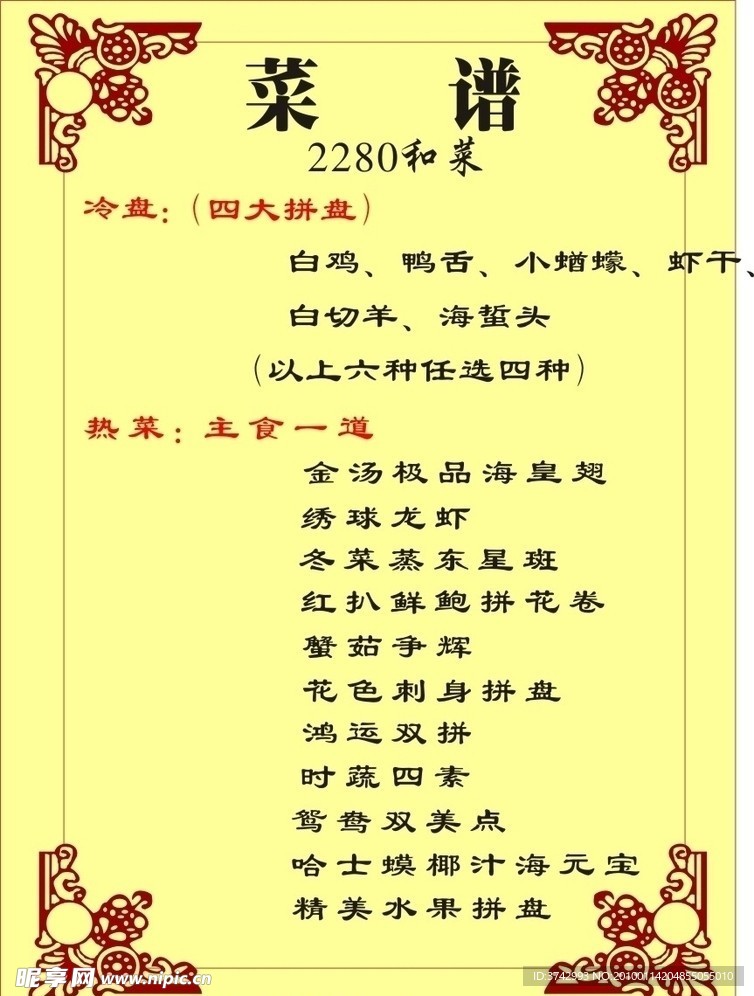 菜 谱
2280和菜
冷盘：（四大拼盘）
白鸡、鸭舌、小蝤蠓、虾干、
白切羊、海蜇头
（以上六种任选四种）
热菜：主食一道
金汤极品海皇翅
绣球龙虾
冬菜蒸东星斑
红扒鲜鲍拼花卷
蟹茹争辉
花色刺身拼盘
鸿运双拼
时蔬四素
鸳鸯双美点
哈士蟆椰汁海元宝
精美水果拼盘
昵享网 www.nipic.cn
ID:3742993 NO.20100114204855055010